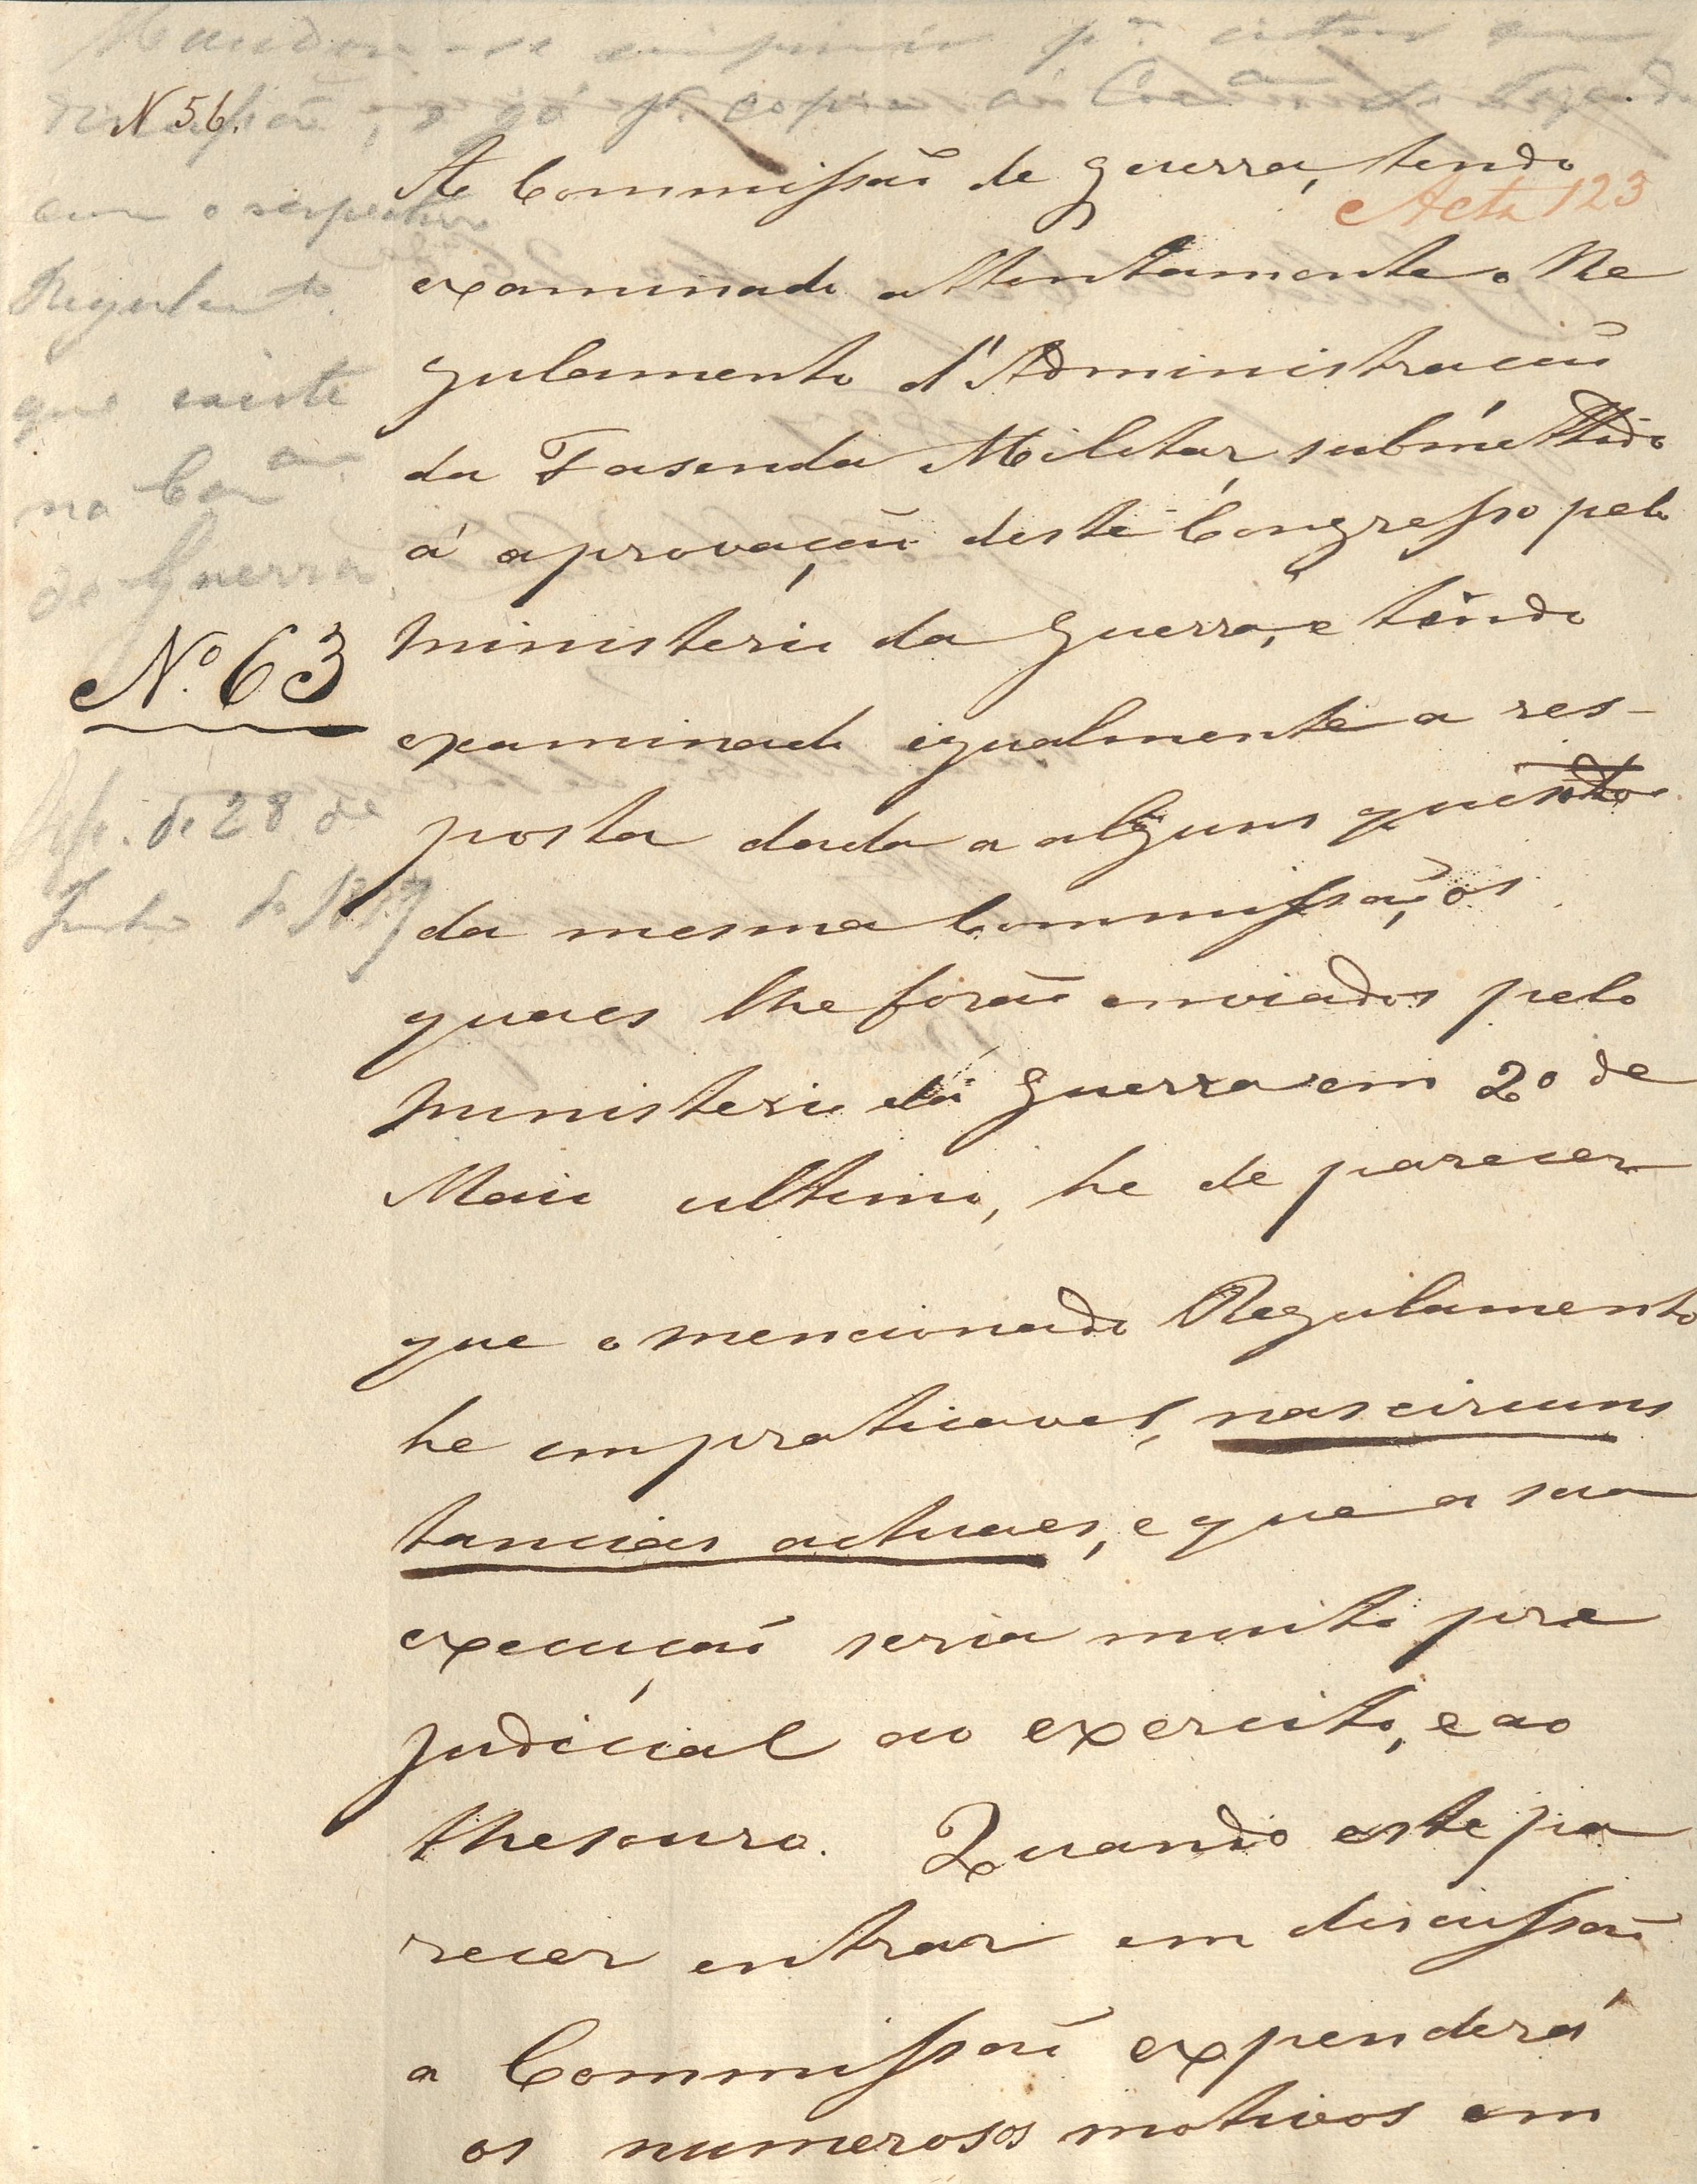 Mandou-se imprimir pª entrar em
discussão, e só
N 56.
A Commissaõ de Guerra, tendo
Acta 123
com o respectivo
examinado attentamente o Re
Regulamto
gulamento d'Administraçaõ
que existe
da Fasenda Militar, submettido
na Com.am
á aprovaçaõ deste Congresso pelo
de Guerra
Ministerio da Guerra, e tendo
Nº 63
examinado igualmente a res-
posta dada a alguns quesitos
de 28 de
da mesma Commissaõ, os
Junho de 1837
quaes lhe foraõ enviados pelo
Ministerio da Guerra em 20 de
Maio ultimo, he de parecer
que o mencionado Regulamento
he impraticavel, nas circuns
tancias actuaes, e que a sua
execuçaõ seria muito pre
judicial ao exercito, e ao
thesouro. Quando este pa
recer entrar em discussaõ
a Commissaõ expenderá
os numerosos motivos em